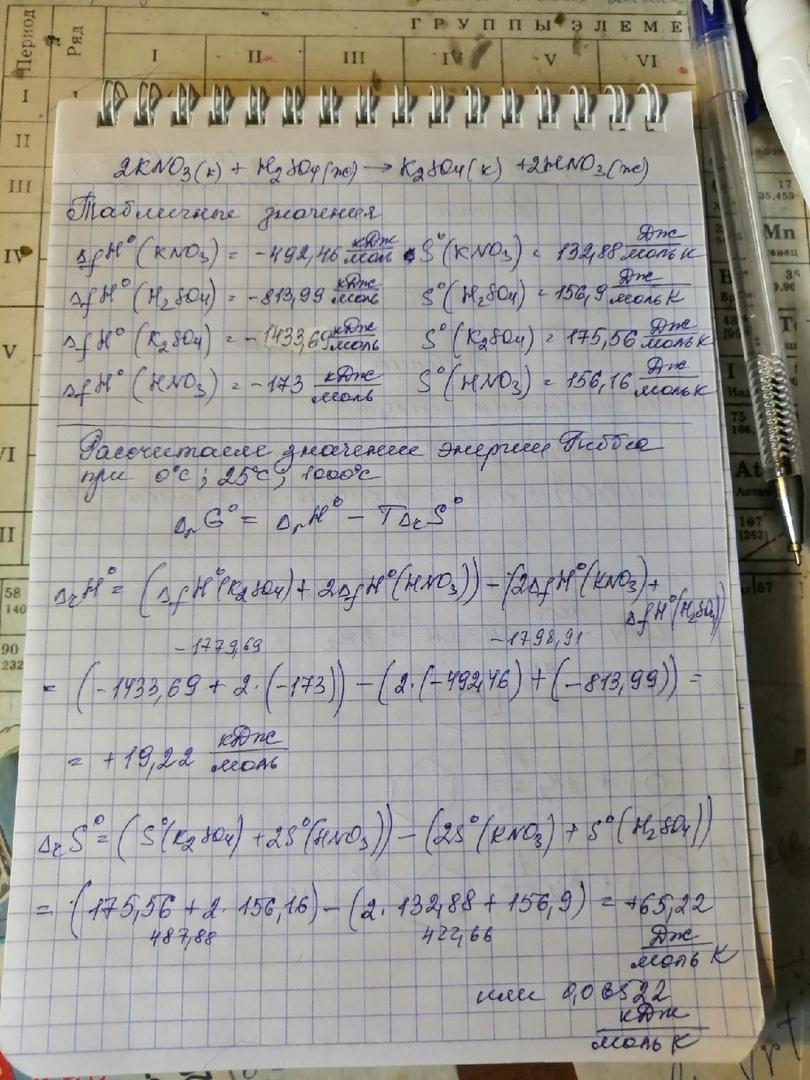 ГРУППЫ ЭЛЕМЕ
Период
Ряд
I II III IV V VI
I
II
III
IV
V
VI
2KNO₃(к) + H₂SO₄(ж) → K₂SO₄(к) + 2HNO₃(ж)
Табличные значения
ΔfH°(KNO₃) = -492,46 кДж/моль S°(KNO₃) = 132,88 Дж/моль К
ΔfH°(H₂SO₄) = -813,99 кДж/моль S°(H₂SO₄) = 156,9 Дж/моль К
ΔfH°(K₂SO₄) = -1433,69 кДж/моль S°(K₂SO₄) = 175,56 Дж/моль К
ΔfH°(HNO₃) = -173 кДж/моль S°(HNO₃) = 156,16 Дж/моль К
Рассчитаем значение энергии Гиббса
при 0°C; 25°C; 1000°C
ΔrG° = ΔrH° - TΔrS°
ΔrH° = (ΔfH°(K₂SO₄) + 2ΔfH°(HNO₃)) - (2ΔfH°(KNO₃) +
ΔfH°(H₂SO₄))
-1779,69 -1798,91
= (-1433,69 + 2·(-173)) - (2·(-492,46) + (-813,99)) =
= +19,22 кДж/моль
ΔrS° = (S°(K₂SO₄) + 2S°(HNO₃)) - (2S°(KNO₃) + S°(H₂SO₄))
= (175,56 + 2·156,16) - (2·132,88 + 156,9) = +65,22
487,88 422,66 Дж/моль К
или 0,06522
кДж/моль К
58
140
90
232
Mn
At
Аста
107
[262]
75